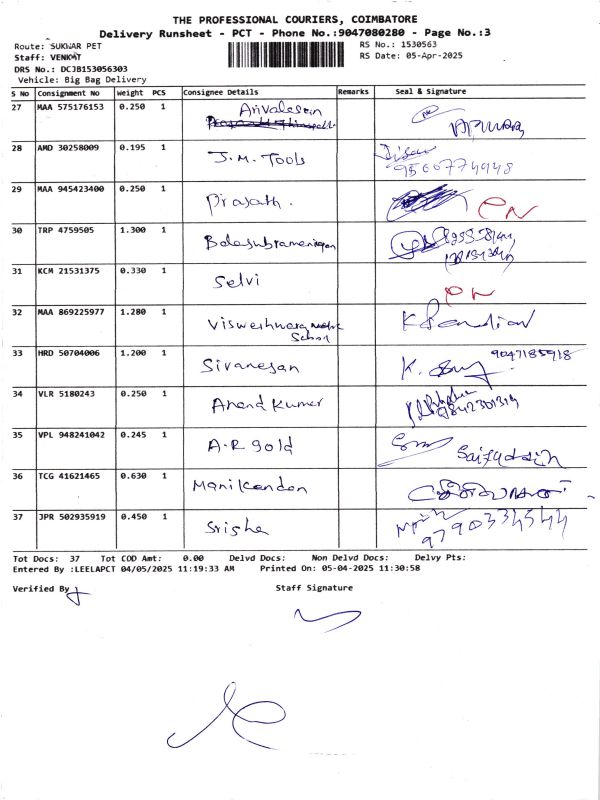 THE PROFESSIONAL COURIERS, COIMBATORE
Delivery Runsheet - PCT - Phone No.:9047080280 - Page No.:3
Route: SUKWAR PET RS No.: 1530563
Staff: VENKAT RS Date: 05-Apr-2025
DRS No.: DCJB153056303
Vehicle: Big Bag Delivery
S No Consignment No Weight PCS Consignee Details Remarks Seal & Signature
27 MAA 575176153 0.250 1
28 AMD 30258009 0.195 1 J.M. Tools 9566774948
29 MAA 945423400 0.250 1 Prasath.
30 TRP 4759505 1.300 1 Balasubramaniyan
31 KCM 21531375 0.330 1 Selvi
32 MAA 869225977 1.280 1 School
33 HRD 50704006 1.200 1 Sivanesan K. 9047185918
34 VLR 5180243 0.250 1 Anand Kumar 9842301319
35 VPL 948241042 0.245 1 A.R gold
36 TCG 41621465 0.630 1 Manikandan
37 JPR 502935919 0.450 1 9790334544
Tot Docs: 37 Tot COD Amt: 0.00 Delvd Docs: Non Delvd Docs: Delvy Pts:
Entered By :LEELAPCT 04/05/2025 11:19:33 AM Printed On: 05-04-2025 11:30:58
Verified By Staff Signature